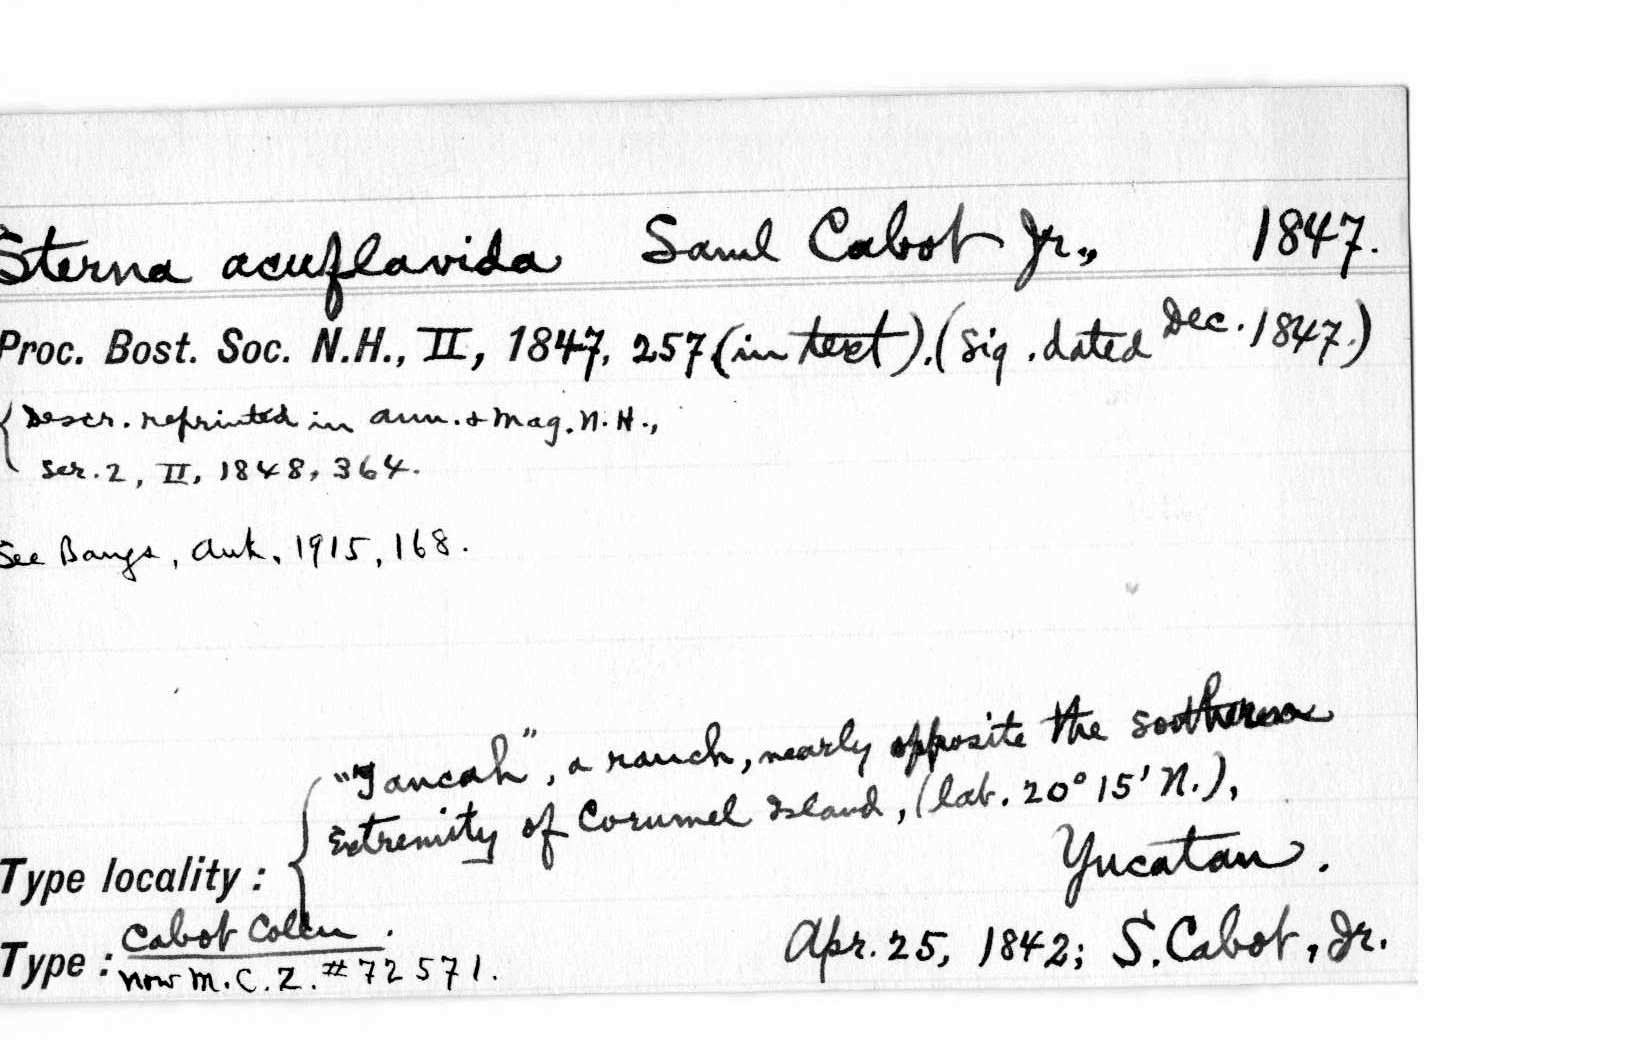 Sterna acuflavida Saml Cabot Jr., 1847.
Proc. Bost. Soc. N.H., II, 1847, 257 (in text). (Sig. dated Dec. 1847.)
{ Descr. reprinted in Ann. & Mag. N. H.,
ser. 2, II, 1848, 364.
See Bangs, Auk, 1915, 168.
"Tancah", a ranch, nearly opposite the southern
extremity of Corumel Island, (lat. 20° 15' N.),
Type locality: { Yucatan.
Type: Cabot Colln. Apr. 25, 1842; S. Cabot, Jr.
now M.C.Z. #72571.